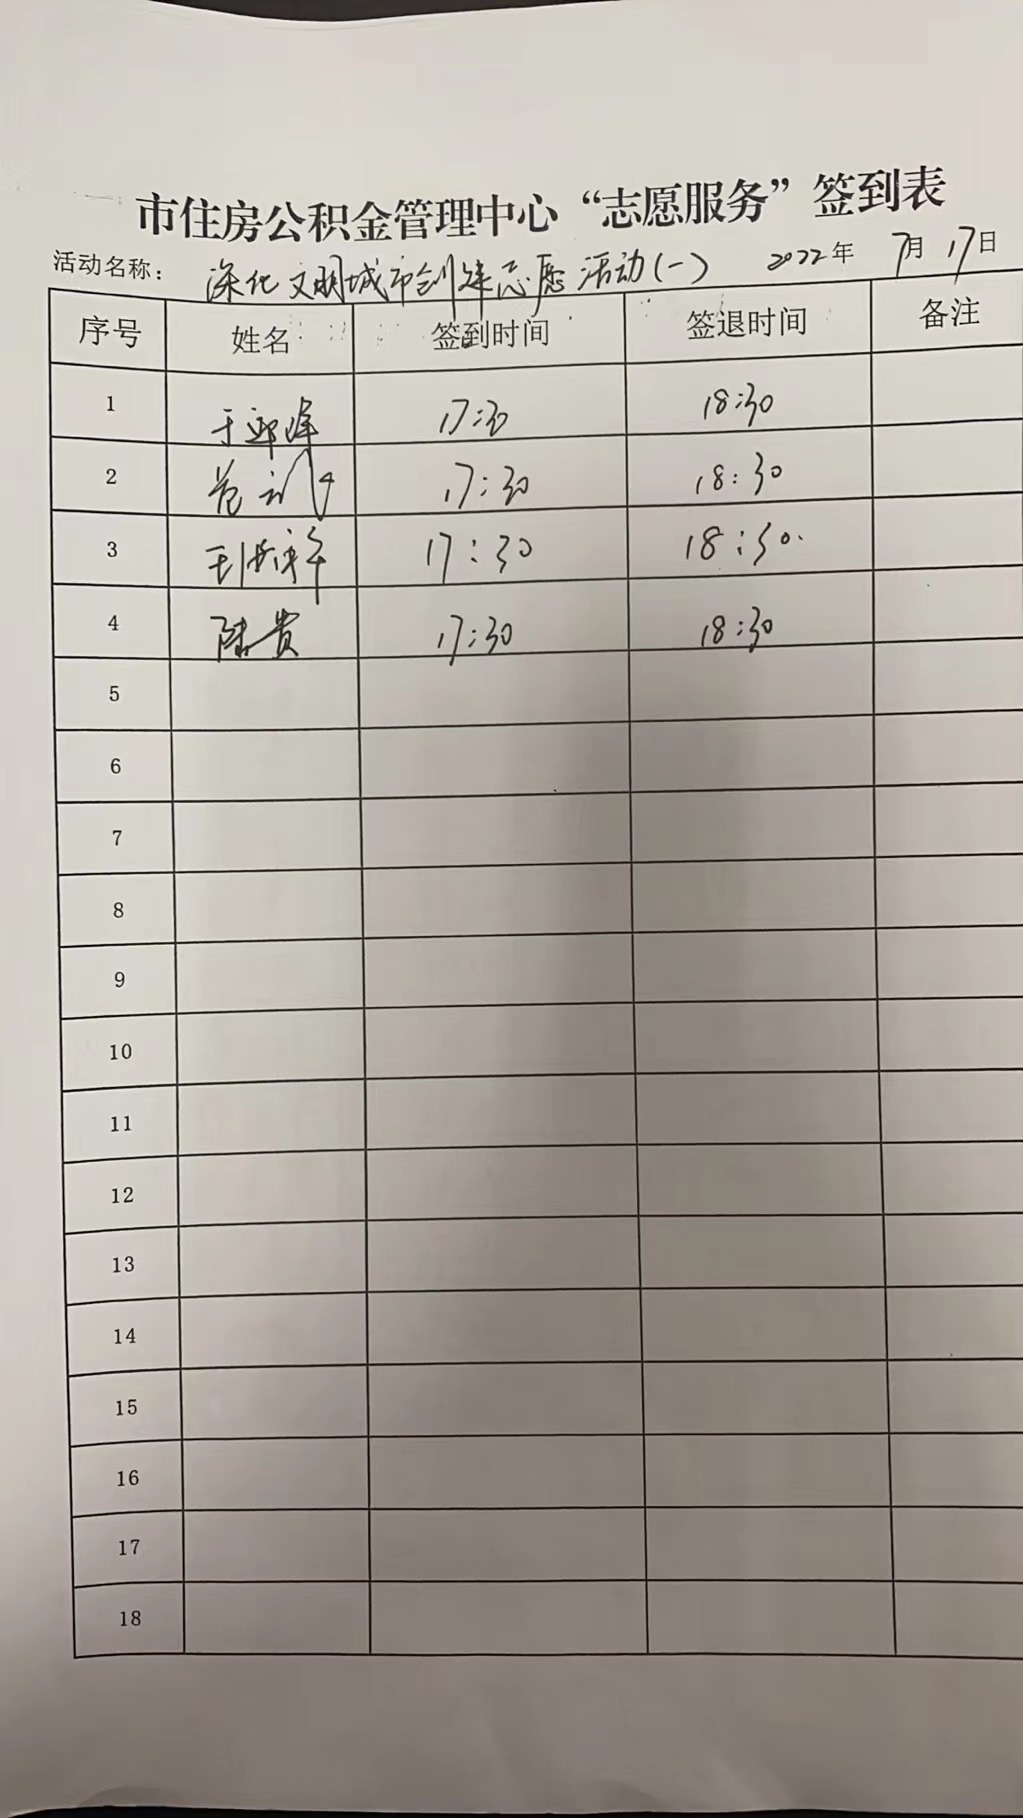 市住房公积金管理中心“志愿服务”签到表
活动名称： 深化文明城市创建志愿活动(一) 2022年 7月17日
序号 姓名 签到时间 签退时间 备注
1 于 17:30 18:30
2 范 17:30 18:30
3 17:30 18:30
4 陆贵 17:30 18:30
5
6
7
8
9
10
11
12
13
14
15
16
17
18